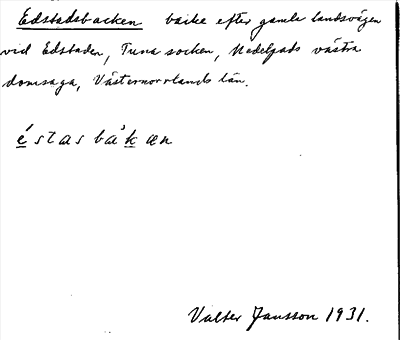 Edstadsbacken backe efter gamla landsvägen
vid Edstaden, Tuna socken, Medelpads västra
domsaga, Västernorrlands län.
éstasbàkæn
Valter Jansson 1931.